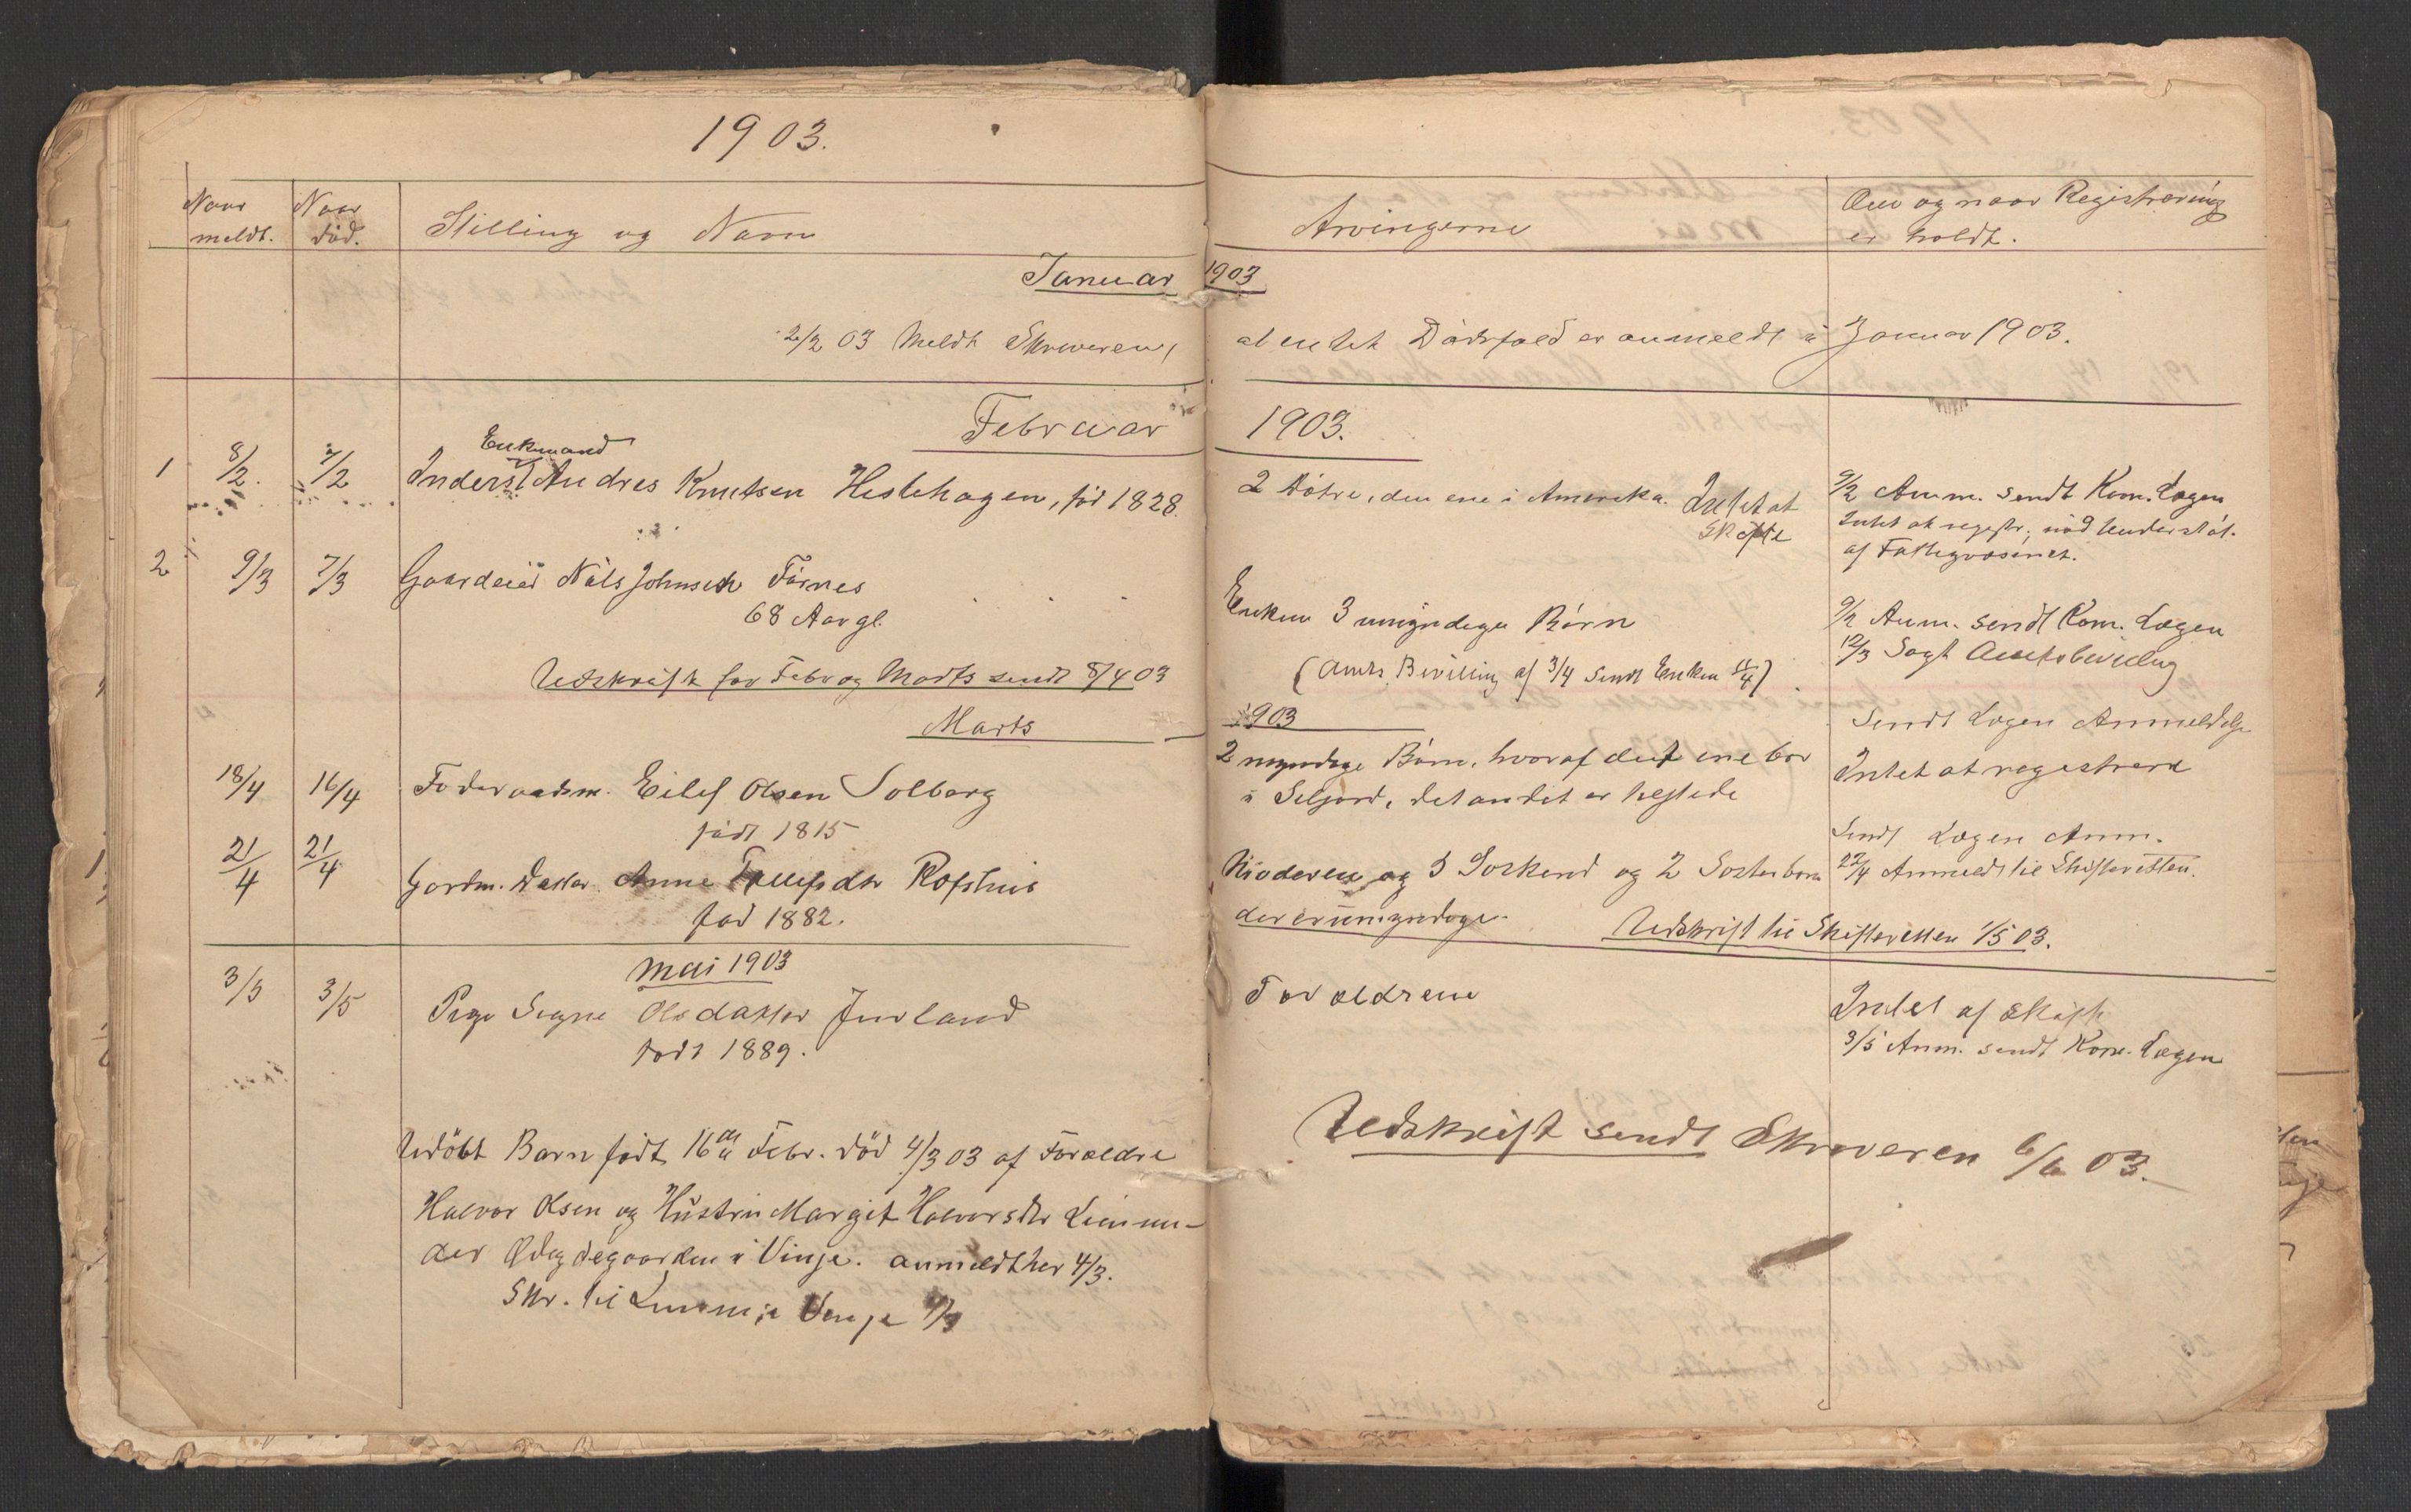 1903.
Naar meldt.
Naar död.
Stilling og Navn
Januar
2/2 03 Meldt Skriveren,
Februar
Enkemand
1 8/2. 7/2 Inderst Andres Knutsen Heslehagen, föd 1828.
2 9/3 7/3 Gaardeier Nils JohnsenFörnes
68 Aar gl.
Udskrift for Febr og Marts sendt 8/4 03
Marts
18/4 16/4 Föderaadsm. Eilef Olsen Solberg
födt 1815
21/4 21/4 Gardm. Datter Anne dtr
föd 1882.
mai 1903
3/5 3/5 Pige Signe Olsdatter Jurland
födt 1889.
Udöbt Barn födt 16de Febr. död 4/3 03 af Forældre
Halvor Olsen og Hustru Margit Halvorsdtr
der i Vinje. anmeldt her 4/3.
Skr. til Vinje
Arvingerne
Om og naar Registrering
er holdt.
1903
at intet Dödsfald er anmeldt i Januar 1903.
1903.
2 Döttre, den ene i Amerika. Intet at
skifte
9/2 Anm. sendt Kom. Lægen
Intet at registr., nöd Understöt.
af Fattigvæsenet.
Enken 3 umyndige Börn
(Amts Bevilling af 3/4 sendt Enken 11/4)
Anm. sendt Kom. Lægen
12/3 Sögt Amtsbevilling
1903
2 myndige Börn, hvoraf det ene bor
i Seljord, det andet er
Sendt Lægen Anmeldelse
Intet at registrere
Moderen og 3 Söskend og 2 Sösterbørn
der er umyndige.
Sendt Lægen Anm.
22/4 Anmeldt til Skifteretten.
Udskrift til Skifteretten 1/5 03.
Forældrene
Intet at skift
3/5 Anm. sendt Kom. Lægen
Udskrift sendt Skriveren 6/6 03.